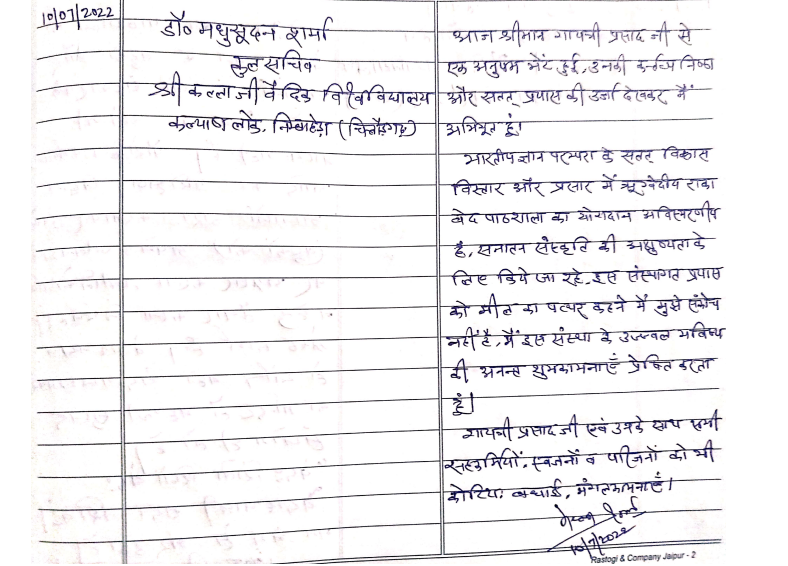 10/07/2022
डॉ० मधुसूदन शर्मा
कुल सचिव
श्री कल्लाजी वैदिक विश्वविद्यालय
कल्याण लोक, निम्बाहेड़ा (चित्तौड़गढ़)
आज श्रीमान गायत्री प्रसाद जी से
एक अनुपम भेंट हुई, उनकी कर्तव्य निष्ठा
और सतत् प्रयास की उर्जा देखकर मैं
अभिभूत हूं।
भारतीय ज्ञान परम्परा के सतत् विकास
विस्तार और प्रसार में ऋग्वेदीय राका
वेद पाठशाला का योगदान अविस्मरणीय
है, सनातन संस्कृति की अक्षुण्यता के
लिए किये जा रहे, इस संस्थागत प्रयास
को मील का पत्थर कहने में मुझे संकोच
नहीं है, मैं इस संस्था के उज्ज्वल भविष्य
की अनन्त शुभकामनाएँ प्रेषित करता
हूं।
गायत्री प्रसाद जी एवं उनके साथ सभी
सहकर्मियों, स्वजनों व परिजनों को भी
कोटिशः बधाई, मंगलकामनाएँ।
10/7/2022
Rastogi & Company Jaipur - 2